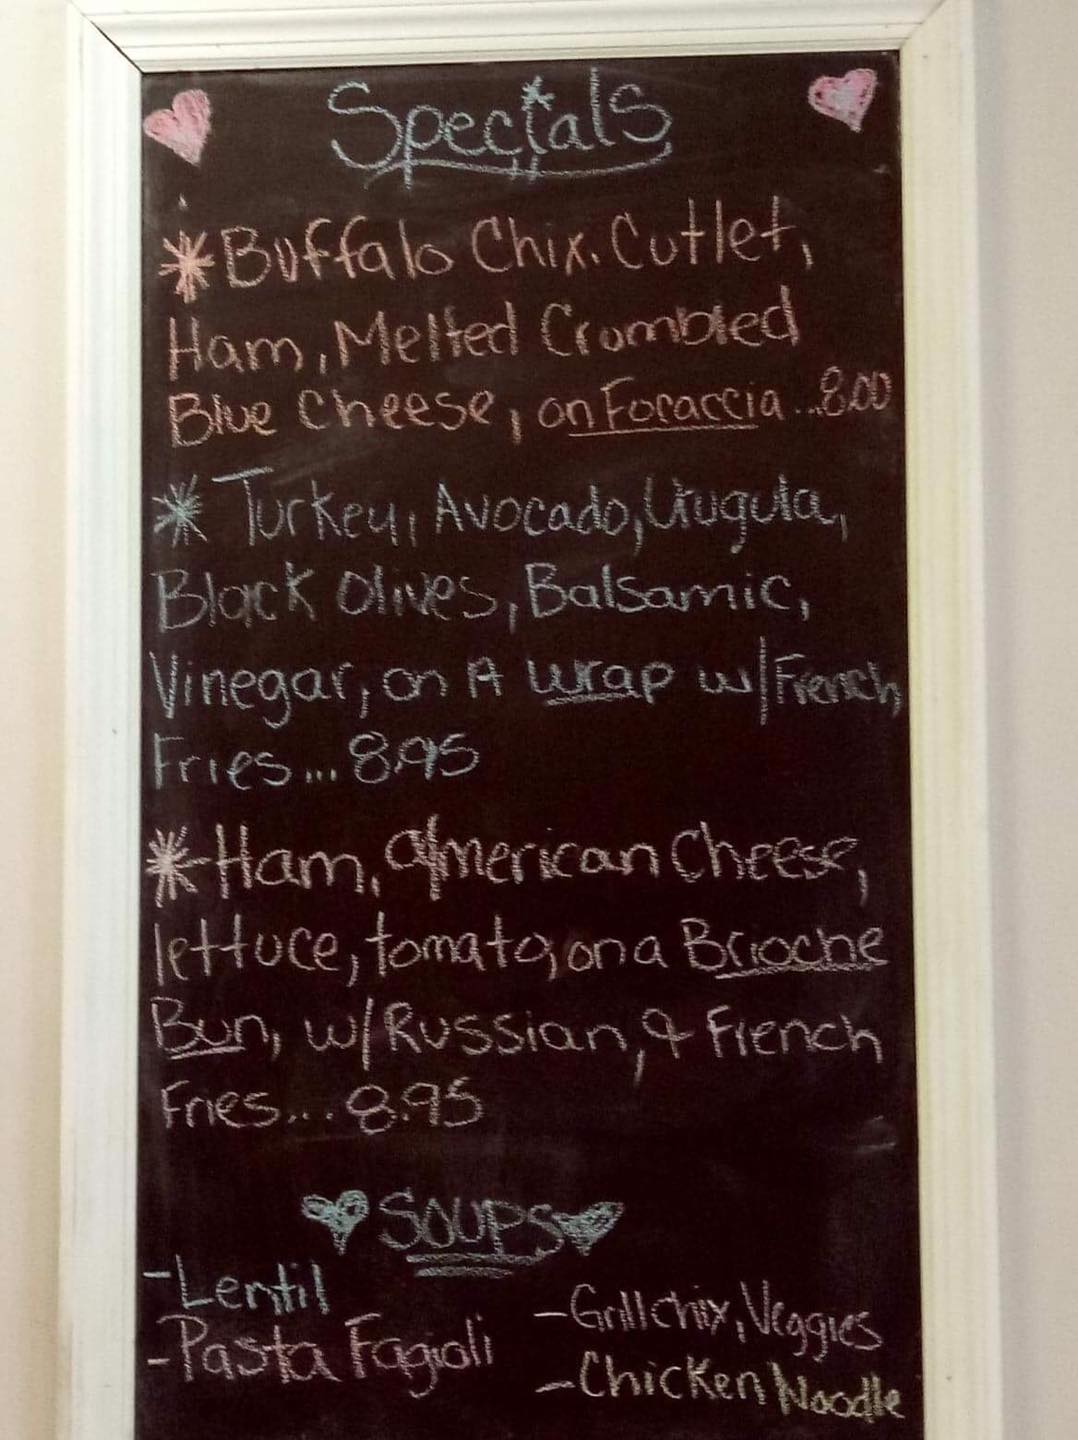 Specials
* Buffalo Chix. Cutlet,
Ham, Melted Crumbled
Blue Cheese, on Focaccia ... 8.00
* Turkey, Avocado, Urugula,
Black Olives, Balsamic,
Vinegar, on A wrap w/French
Fries... 8.95
* Ham, American Cheese,
lettuce, tomato, on a Brioche
Bun, w/Russian, & French
Fries... 8.95
Soups
-Lentil
-Pasta Fagioli
-Grill chix, Veggies
-Chicken Noodle